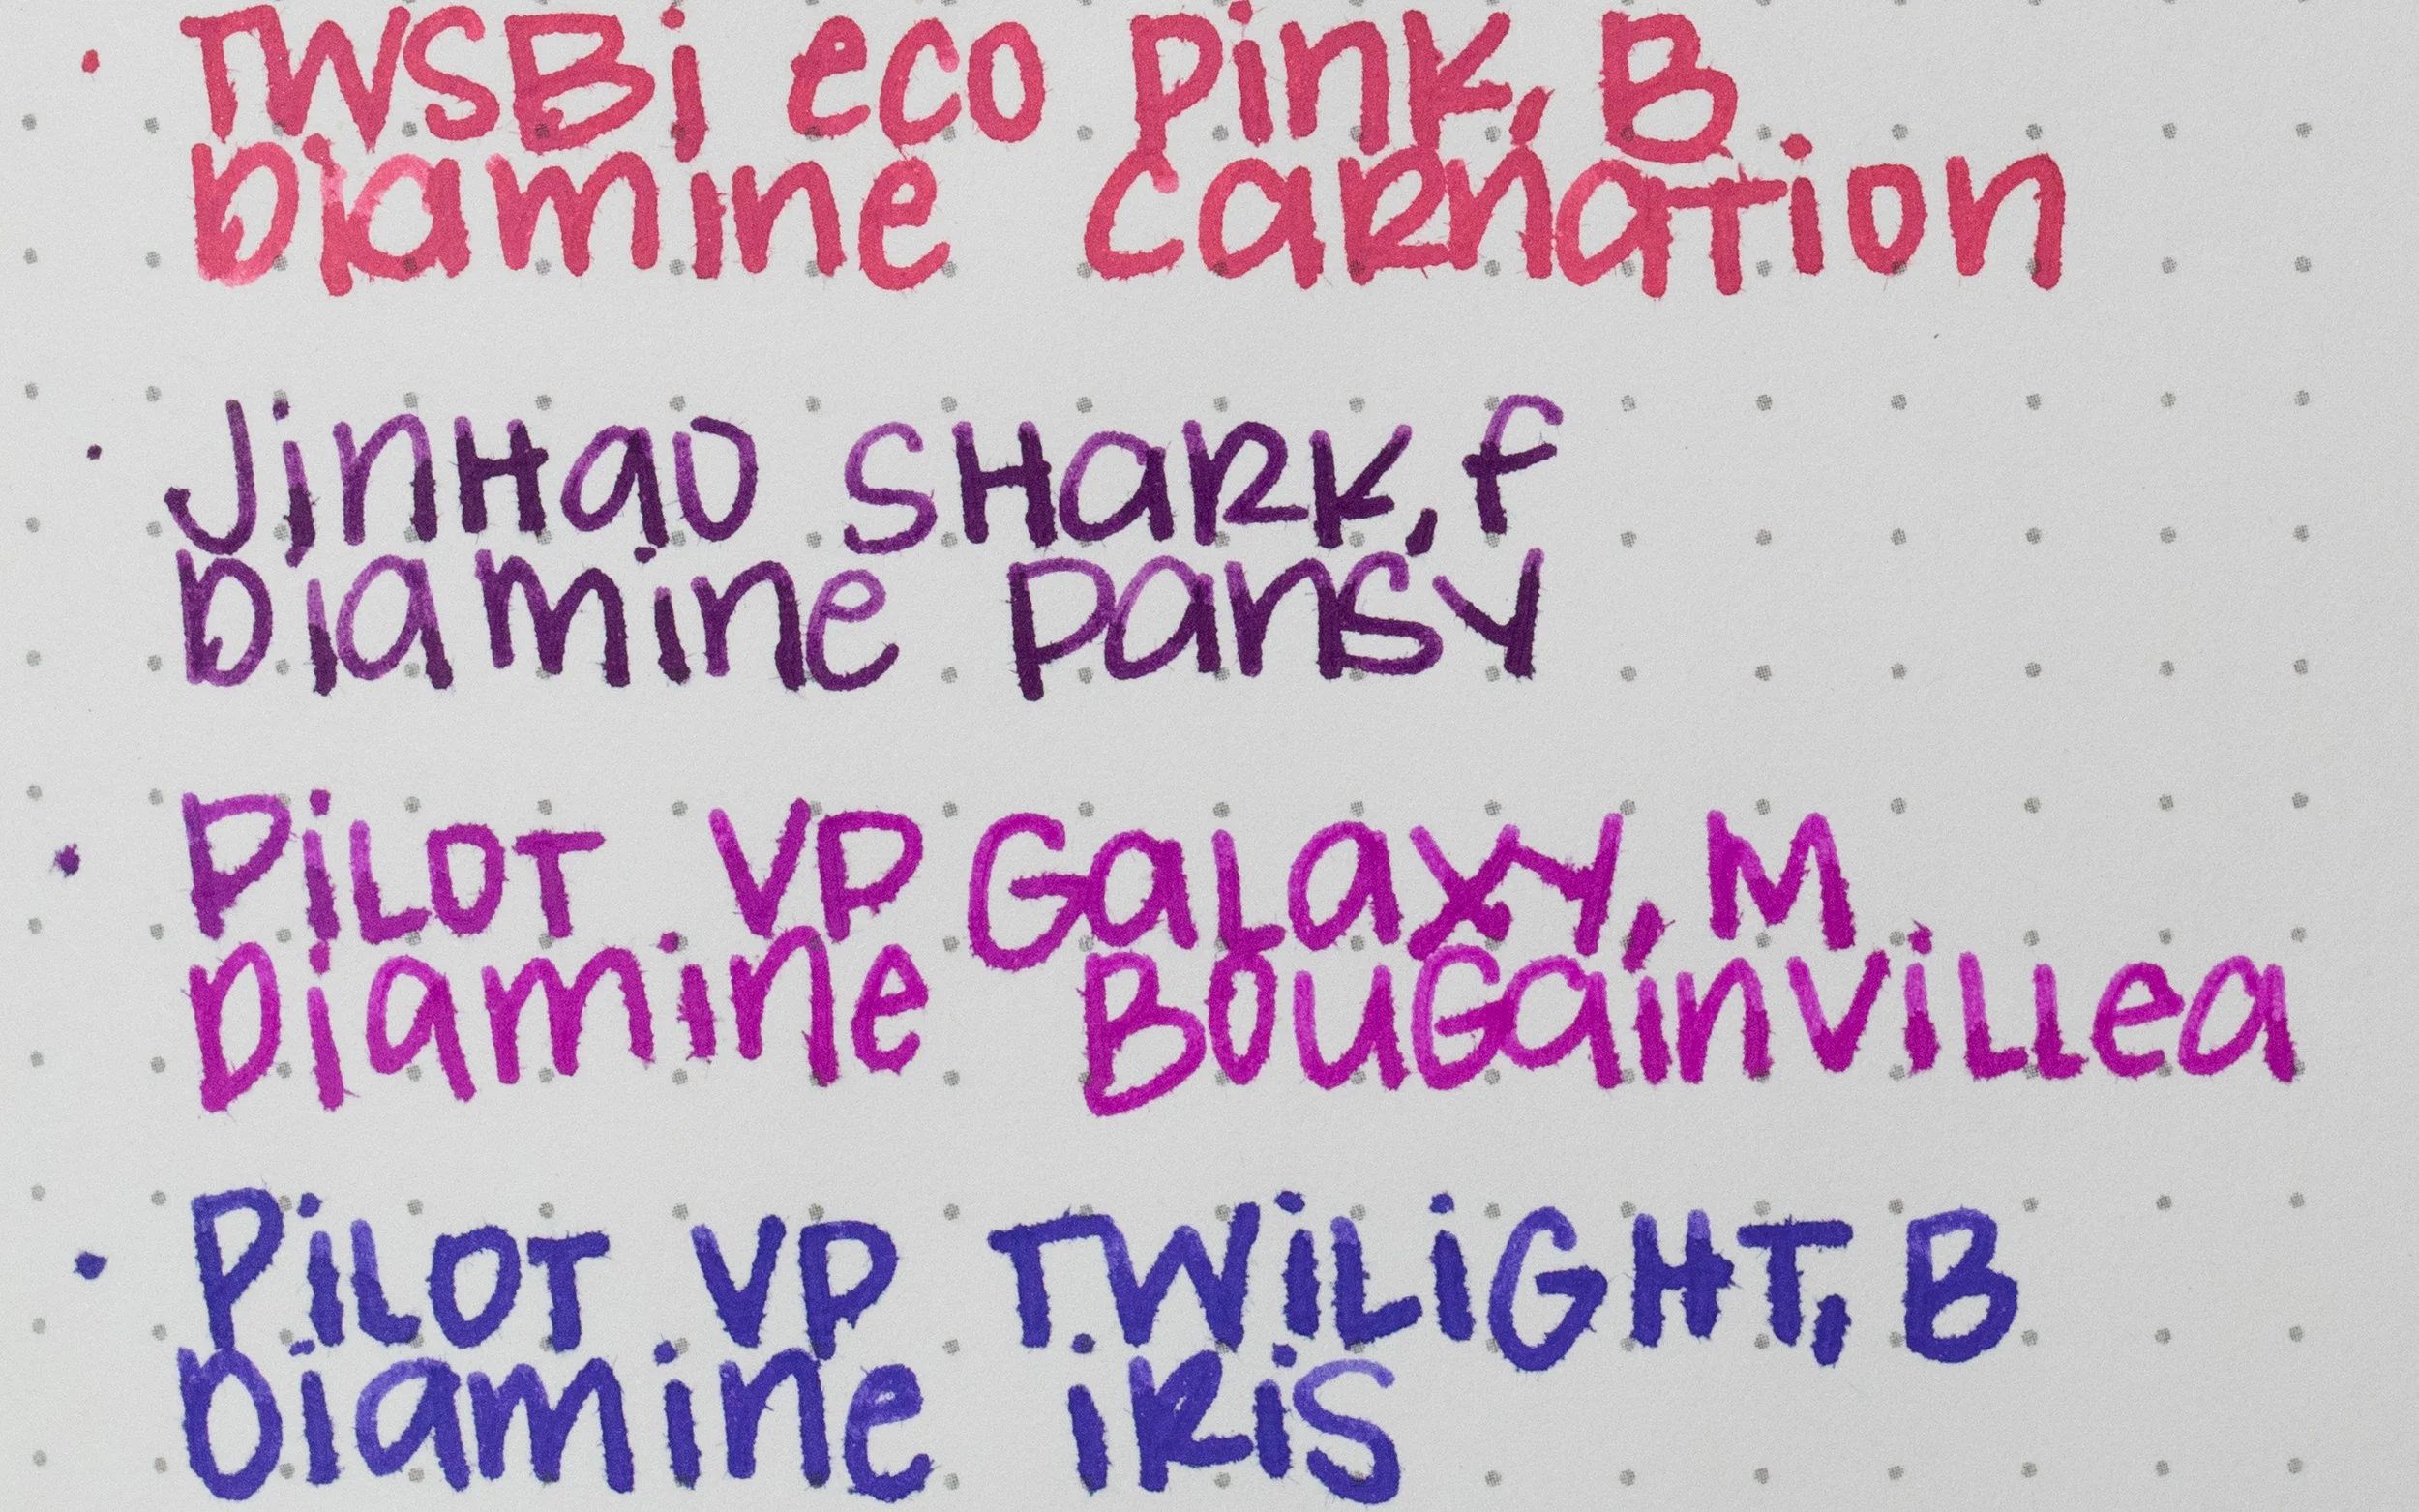 · TWSBi eco Pink, B
Diamine Carnation
· JinHao SHaRK, f
Diamine Pansy
· PiLOT VP GaLaxy, M
Diamine BouGainViLLea
· PiLOT VP TWiLiGHT, B
Diamine iRiS